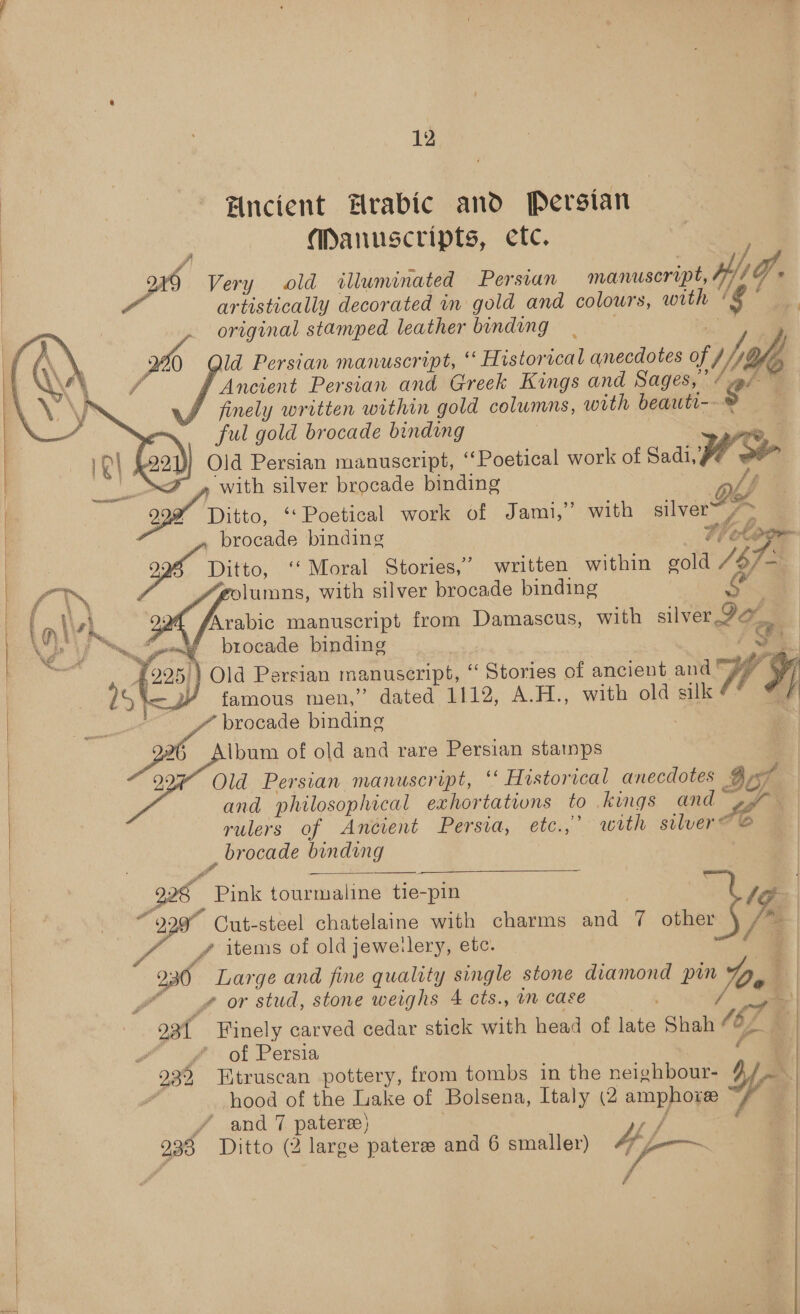 12
Ancient Arabic and Persian
Manuscripts, etc.
219 Very old illuminated Persian manuscript,
artistically decorated in gold and colours, with
original stamped leather binding
220 Old Persian manuscript, “Historical anecdotes of
Ancient Persian and Greek Kings and Sages,”
finely written within gold columns, with beauti-
ful gold brocade binding
221 Old Persian manuscript, “Poetical work of Sadi,”
with silver brocade binding
222 Ditto, “Poetical work of Jami,” with silver
brocade binding
223 Ditto, “Moral Stories,” written within gold
columns, with silver brocade binding
224 Arabic manuscript from Damascus, with silver
brocade binding
225 Old Persian manuscript, “Stories of ancient and
famous men,” dated 1112, A.H., with old silk
brocade binding
226 Album of old and rare Persian stamps
227 Old Persian manuscript, “Historical anecdotes
and philosophical exhortations to kings and
rulers of Ancient Persia, etc.,” with silver
brocade binding
228 Pink tourmaline tie-pin
229 Cut-steel chatelaine with charms and 7 other
items of old jewellery, etc.
230 Large and fine quality single stone diamond pin
or stud, stone weighs 4 cts., in case
231 Finely carved cedar stick with head of late Shah
of Persia
232 Etruscan pottery, from tombs in the neighbour-
hood of the Lake of Bolsena, Italy (2 amphoræ
and 7 pateræ)
233 Ditto (2 large pateræ and 6 smaller)